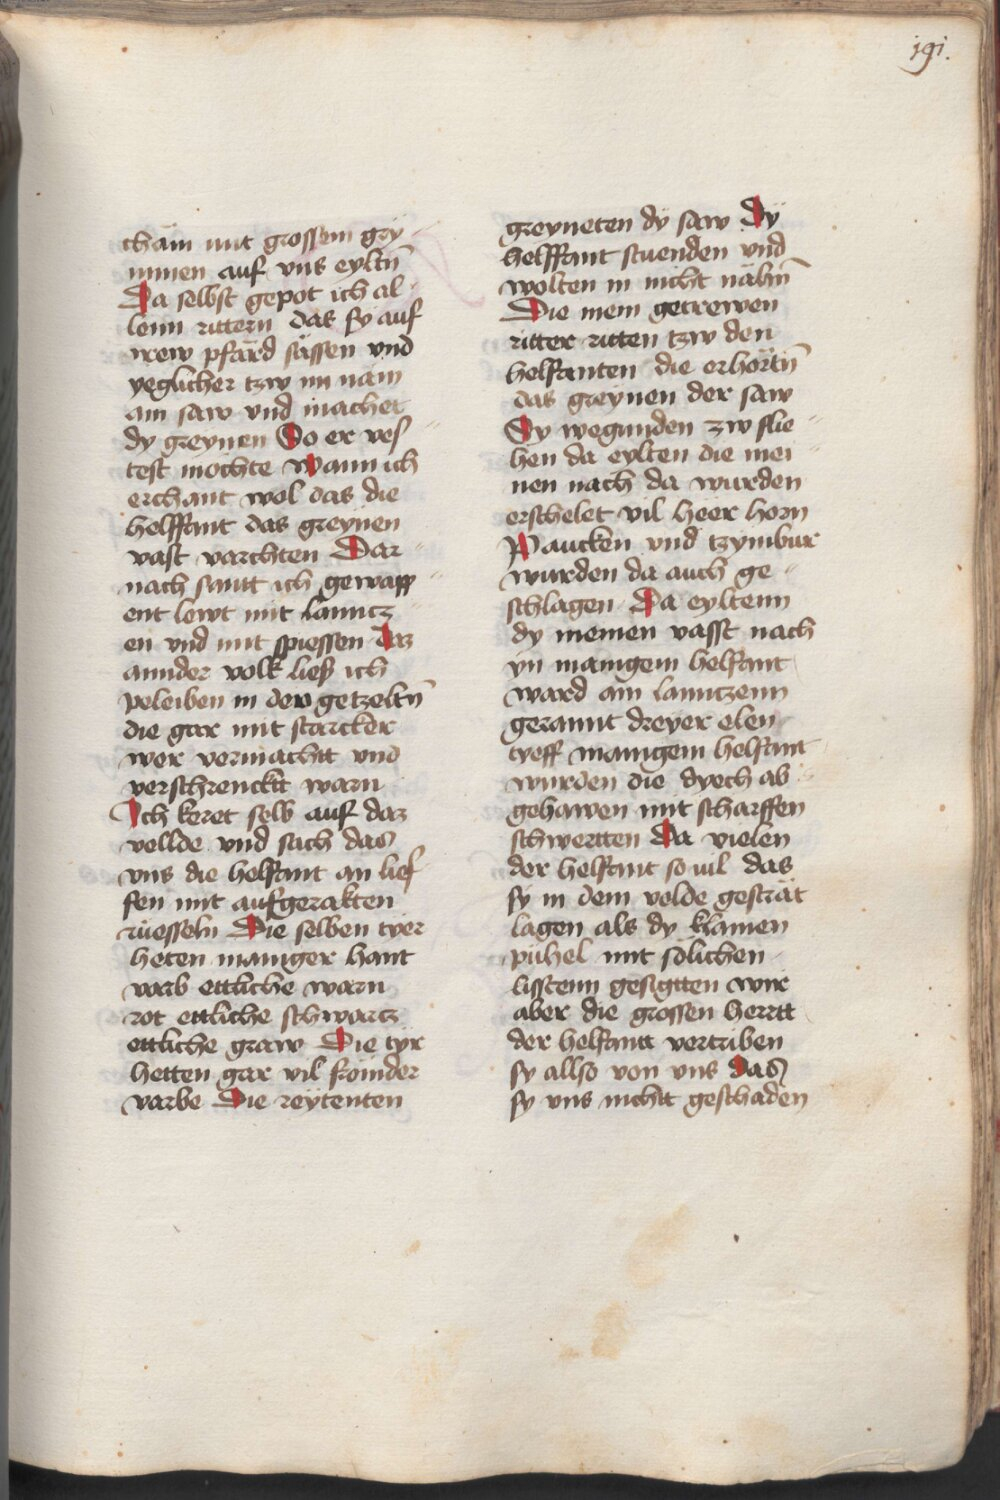 191.
cham mit grossem gry
mmen auf vns eyltn̄
Da selbst gepot ich al
lenn rittern das sy auf
irew pfärd sässen vnd
yeglicher tzw im näm
ain saw vnd machet
dy greynen So er ves
test mochte Wann ich
erchant wol das die
helffant das greynen
vast varchten Dar
nach sant ich gewapp
ent lewt mit lanncz
en vnd mit spiessen Daz
annder volk lies ich
peleiben in den getzeltn̄
die gar mit starcker
wer vermacht vnd
verschrenckt warn
Ich keret selb auf daz
vellde vnd sach das
vns die helfant an lief
fen mit aufgerakten
rüesseln Die selben tyer
heten maniger hant
varb ettliche warn
rot ettliche schwarcz
ettliche graw Die tyr
hetten gar vil frömder
varbe Die reytenten
greyneten dy saw Dy
helffant stuenden vnd
wolten in nicht nähn̄
Die mein getrewen
ritter ritten tzw den
helfanten die erhörtn̄
das greynen der saw
Dy wegunden zw flie
hen da eylten die mei
nen nach da wurden
erschelet vil heer horn
Paucken vnd tzymbur
wurden da auch ge
schlagen Da eyltenn
dy meinen vasst nach
yn manigem helfant
ward ain lanntzenn
gerannt dreyer elen
tyeff manigem helfant
wurden die dyech ab
gehawen mit scharffen
schwertten Da vielen
der helfant so vil das
sy in dem velde gesträt
lagen als dy klainen
pühel mit sölichen
listenn gesigtten wir
aber die grossen herrtt
der helfantt vertriben
sy allso von vns Das
sy vns nichtt geschaden